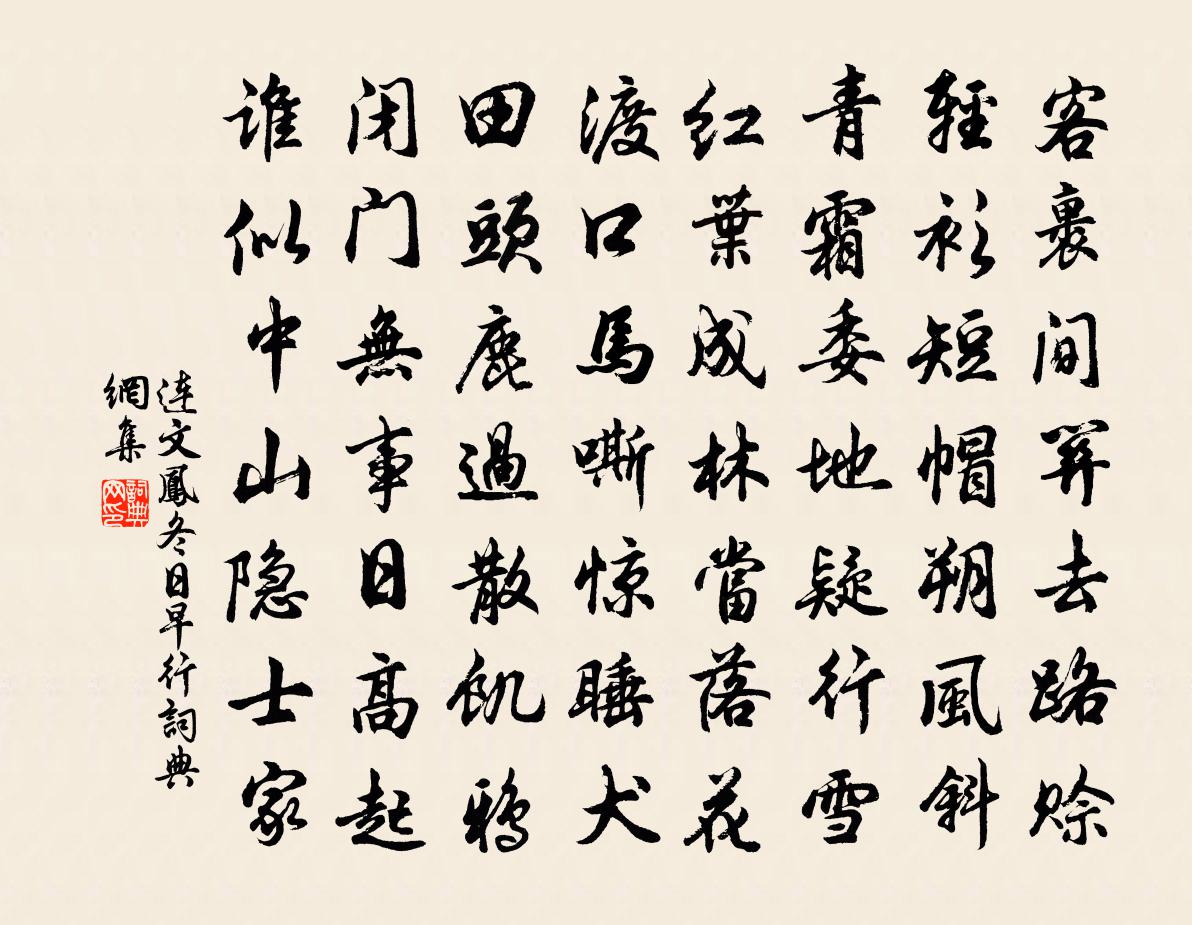 客裹间笄去路賒
輕衫短帽朔風斜
青霜委地疑行雪
红葉成林當落花
渡口馬嘶惊睡犬
田頭鹿過散飢鸦
闭门無事日高起
谁似中山隐士家
连文鳳冬日早行詞典
網集
詞典
网印